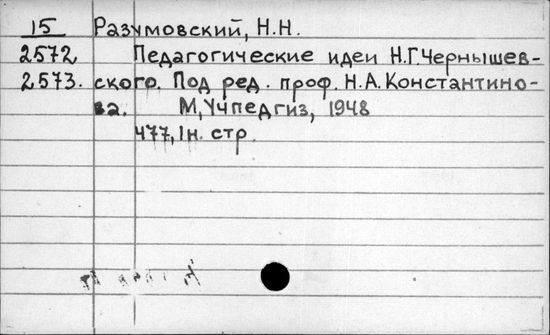 15 Разумовский, Н.Н.
2572 Педагогические идеи Н.Г.Чернышев-
2573. ского. Под ред. проф. Н.А.Константино-
ва. М, Учпедгиз, 1948
477, 1н. стр.